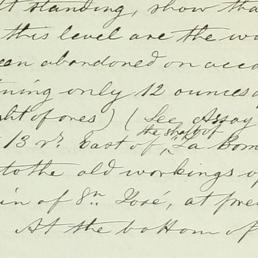 t standing, show tha
this level are the wo
en abandoned on acco
ning only 12 ounces o
ght of ores) (See Assay
the shaft of
13 vs. East of ^ La Bom
to the old workings o
in of Sn. José, at pre
At the bottom of